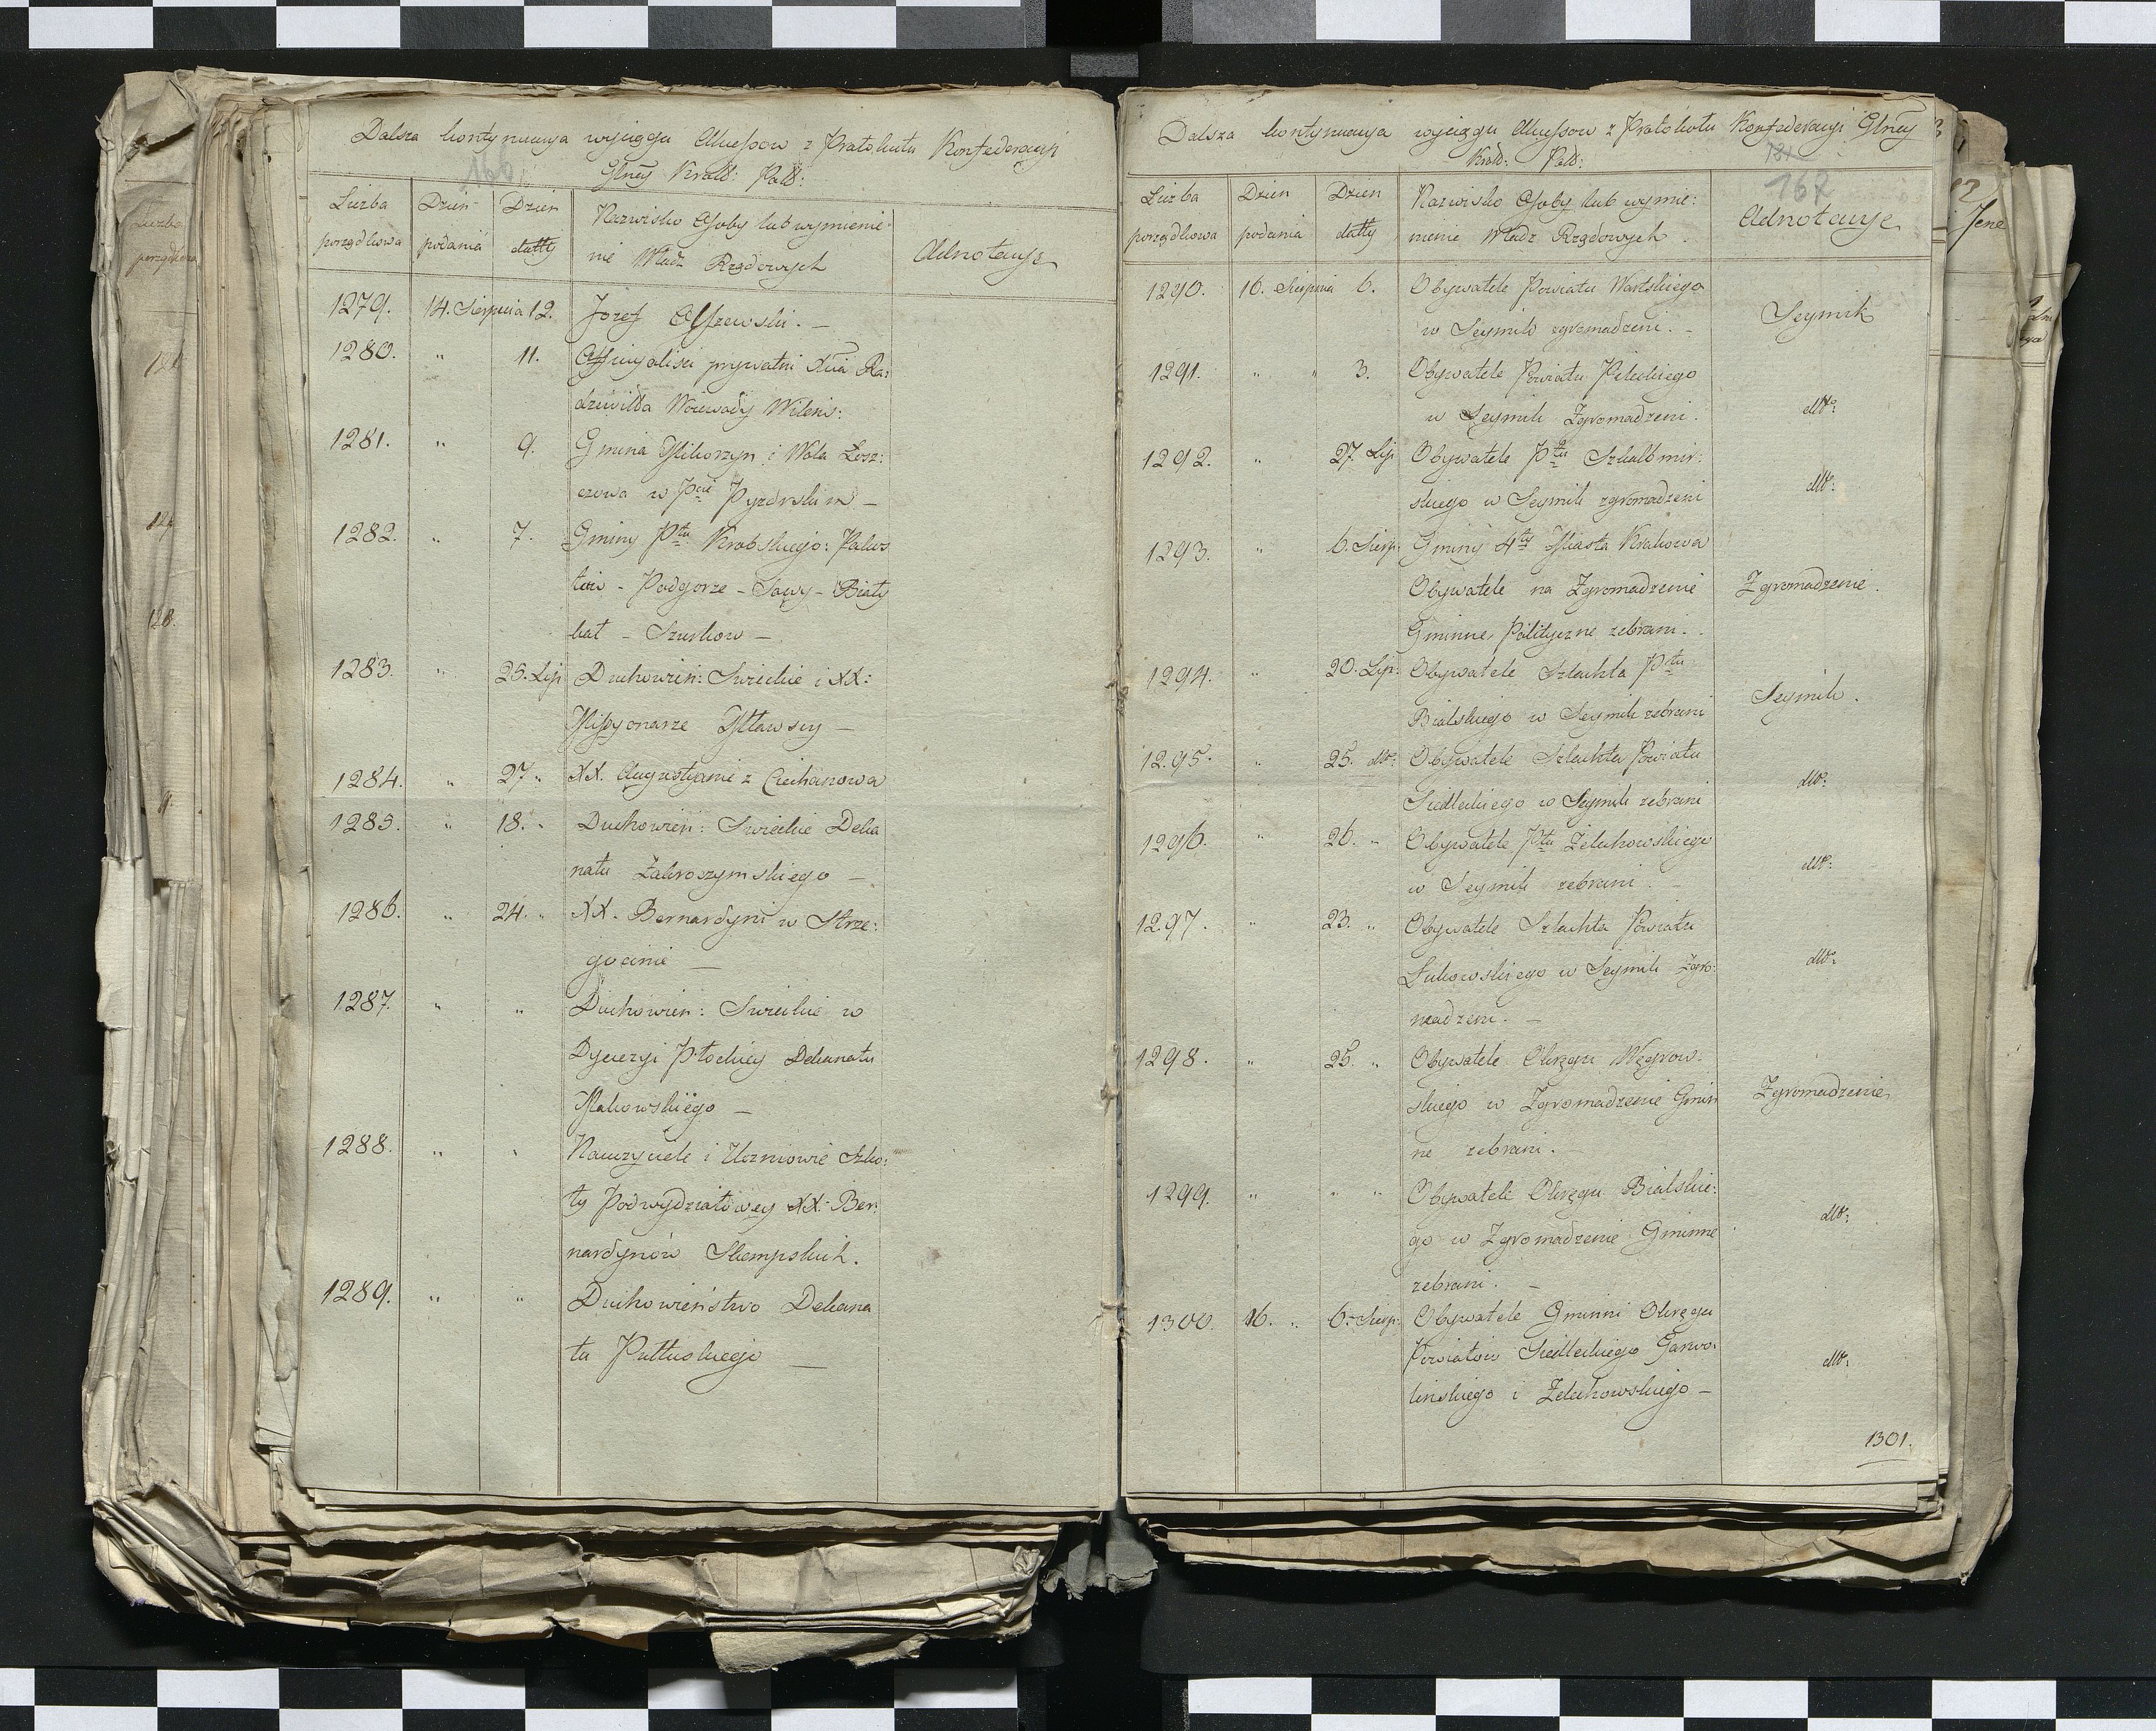 Dalsza kontynuacya wyciągu Akcessow z Protokułu Konfederacyi
Glney Krolo: Polo:
166
Liczba porządkowa
Dzien podania
Dzien datty
Nazwisko Osoby lub wymienie-
nie Władz Rządowych
Adnotacye
1279. 14. Sierpnia 12. Jozef Olszewski. —
1280. " 11. Officyaliści prywatni Xcia Ra:
dziwiłła Woiewody Wileńs:
1281. " 9. Gmina Mikorzyn i Wola Łosz:
czowa w Pcie Pyzdrskim —
1282. " 7. Gminy Ptu Krobskiego:
- Podgorze - - Biały
kał - —
1283. " 25. Lip Duchowień: Swieckie i XX:
Missyonarze Mławscy —
1284. " 27 " XX. Augustyanie z Ciechanowa
1285. " 18. " Duchowień: Swieckie Deka
natu Zakroczymskiego —
1286. " 24. " XX. Bernardyni w Strze:
gocinie —
1287. " " Duchowień: Swieckie w
Dyecezyi Płockiey Dekanatu
Makowskiego —
1288. " " Nauczyciele i Uczniowie Szko:
ły Podwydziałowey XX: Ber:
nardynów Skempskich.
1289. " " Duchowieństwo Dekana
tu Pułtuskiego —
Dalsza kontynuacya wyciągu Akcessow z Protokułu Konfederacyi Glney
Krolo: Polo:
167
Liczba porządkowa
Dzien podania
Dzien datty
Nazwisko Osoby lub wymie:
nienie Władz Rządowych.
Adnotacye
1290. 16. Sierpnia 6. Obywatele Powiatu Wartskiego
w Seymik zgromadzeni. — Seymik
1291. " " 3. Obywatele Powiatu Pileckiego
w Seymik Zgromadzeni. dtto:
1292. " 27. Lip Obywatele Ptu Szkalbmir:
skiego w Seymik zgromadzeni dtto:
1293. " 6. Sierp: Gminy 4ty Miasta Krakowa
Obywatele na Zgromadzenie Zgromadzenie.
Gminne Polityczne zebrani.
1294. " 20. Lip: Obywatele Szlachta Ptu
Bialskiego w Seymik zebrani Seymik.
1295. " 25. dtto: Obywatele Szlachta Powiatu
Siedleckiego w Seymik zebrani dtto:
1296. " 26. " Obywatele Ptu Zelechowskiego
w Seymik zebrani. dtto:
1297. " 23. " Obywatele Szlachta Powiatu
Łukowskiego w Seymik Zgro: dtto:
madzeni. —
1298. " 25. " Obywatele Okręgu Węgrow-
skiego w Zgromadzenie Gmin Zgromadzenie
ne zebrani.
1299. " " " Obywatele Okręgu Bialskie:
go w Zgromadzenie Gminne dtto:
zebrani. —
1300. 16. " 6. Sierp: Obywatele Gminni Okręgu
Powiatów Siedleckiego Garwo: dtto:
linskiego i Zelechowskiego —
1301.